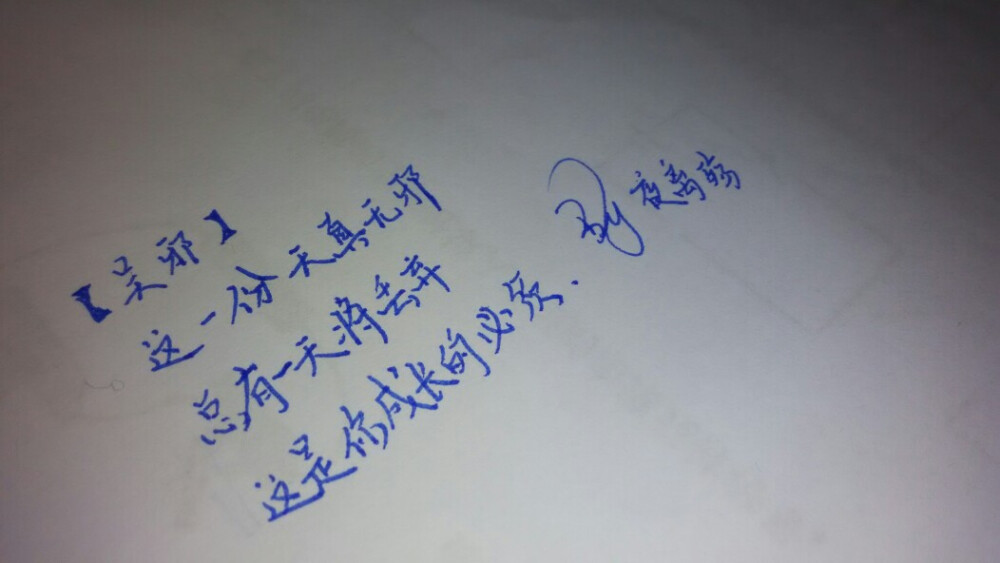 【吴邪】
这一份天真无邪
总有一天将丢弃
这是你成长的必须.
By 夜离殇